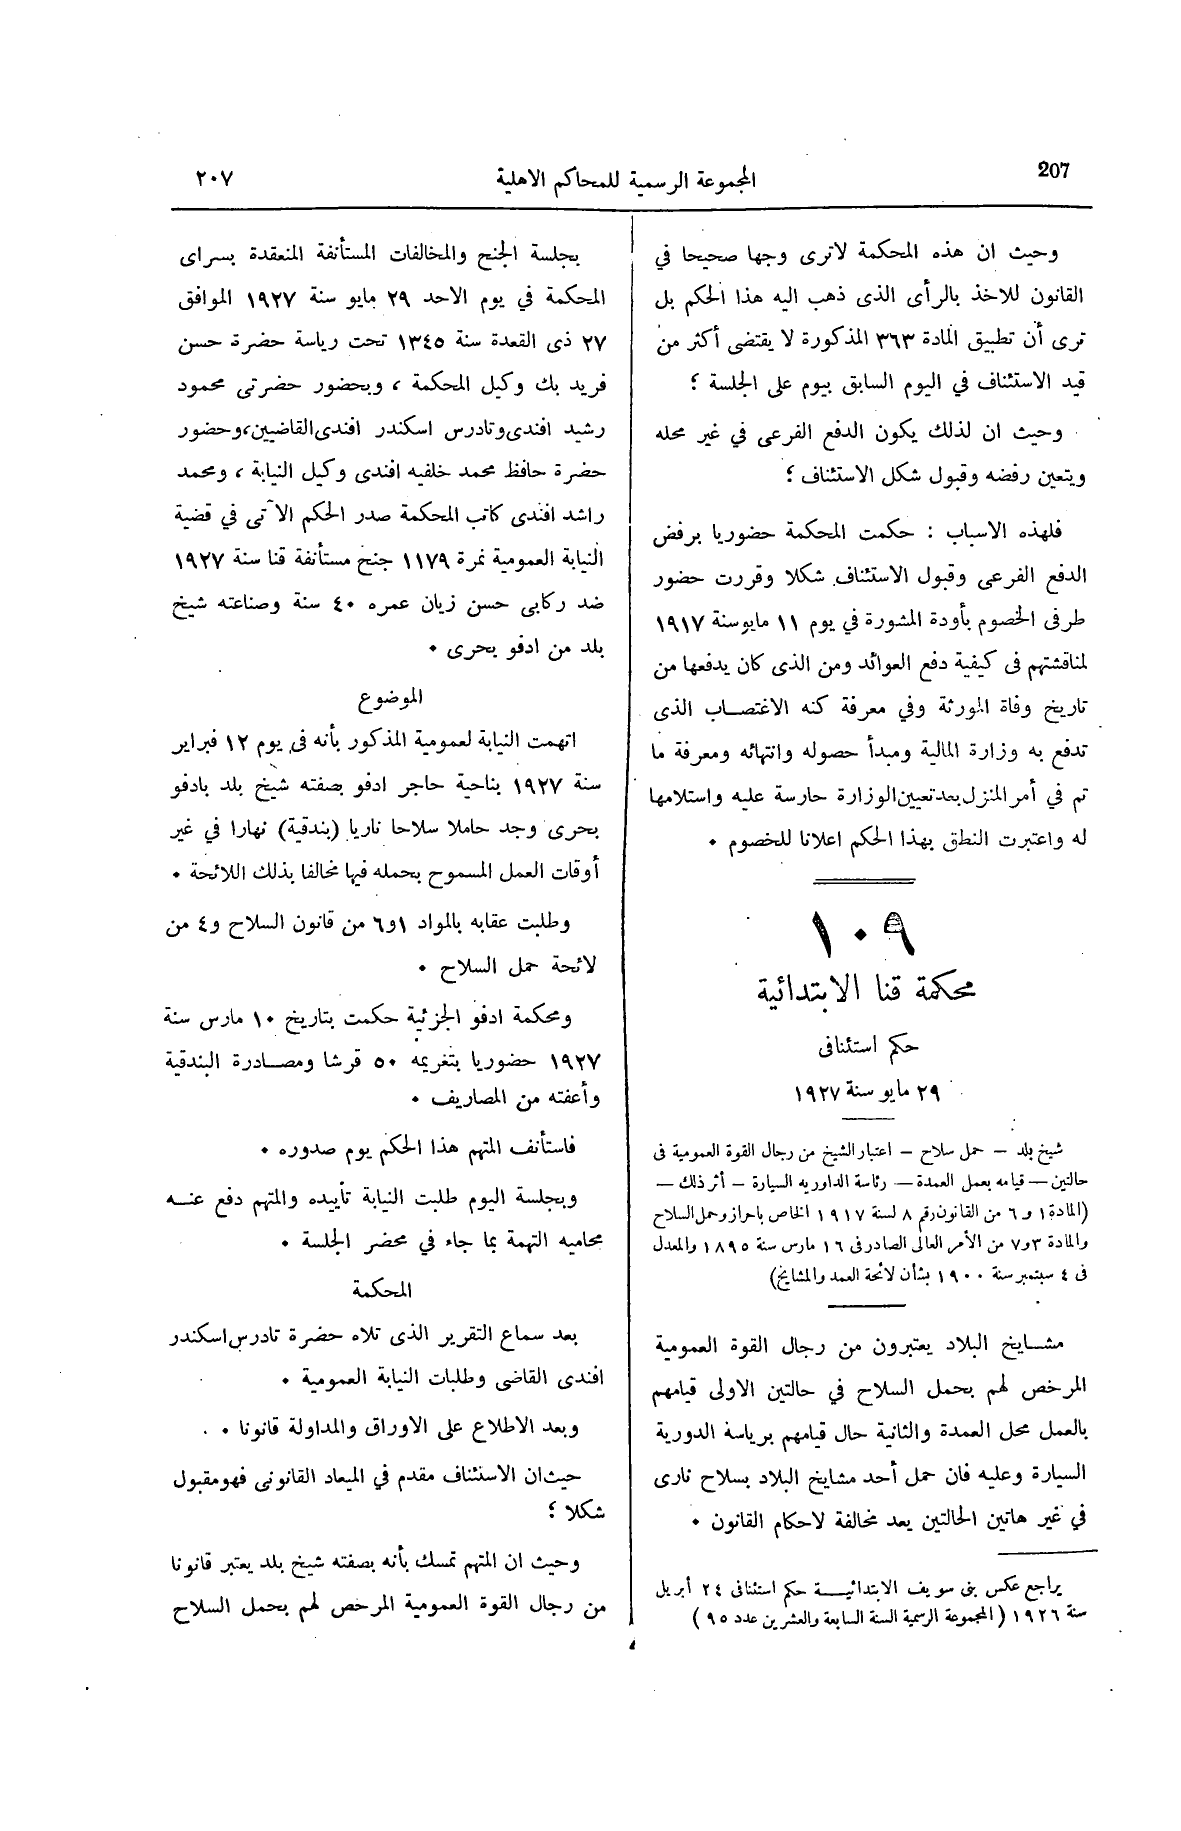 207
المجموعة الرسمية للمحاكم الاهلية
٢٠٧
وحيث ان هذه المحكمة لاترى وجها صحيحا في
القانون للاخذ بالرأى الذى ذهب اليه هذا الحكم بل
ترى أن تطبيق المادة ٣٦٣ المذكورة لا يقتضى أكثر من
قيد الاستئناف في اليوم السابق بيوم على الجلسة ؛
وحيث ان لذلك يكون الدفع الفرعى في غير محله
ويتعين رفضه وقبول شكل الاستئناف ؛
فلهذه الاسباب : حكمت المحكمة حضوريا برفض
الدفع الفرعى وقبول الاستئناف شكلا وقررت حضور
طرفى الخصوم بأودة المشورة في يوم ١١ مايوسنة ١٩١٧
لمناقشتهم فى كيفية دفع العوائد ومن الذى كان يدفعها من
تاريخ وفاة المورثة وفي معرفة كنه الاغتصاب الذى
تدفع به وزارة المالية ومبدأ حصوله وانتهائه ومعرفة ما
تم في أمر المنزل بعد تعيين الوزارة حارسة عليه واستلامها
له واعتبرت النطق بهذا الحكم اعلانا للخصوم .
١٠٩
محكمة قنا الابتدائية
حكم استئنافى
٢٩ مايو سنة ١٩٢٧
شيخ بلد – حمل سلاح – اعتبار الشيخ من رجال القوة العمومية فى
حالتين – قيامه بعمل العمدة – رئاسة الداوريه السيارة – أثر ذلك –
(المادة ١ و ٦ من القانون رقم ٨ لسنة ١٩١٧ الخاص باحراز وحمل السلاح
والمادة ٣و٧ من الأمر العالى الصادر فى ١٦ مارس سنة ١٨٩٥ والمعدل
فى ٤ سبتمبر سنة ١٩٠٠ بشأن لائحة العمد والمشايخ)
مشايخ البلاد يعتبرون من رجال القوة العمومية
المرخص لهم بحمل السلاح في حالتين الاولى قيامهم
بالعمل محل العمدة والثانية حال قيامهم برياسة الدورية
السيارة وعليه فان حمل أحد مشايخ البلاد بسلاح نارى
في غير هاتين الحالتين يعد مخالفة لاحكام القانون .
يراجع عكس بنى سويف الابتدائية حكم استئنافى ٢٤ أبريل
سنة ١٩٢٦ ( المجموعة الرسمية السنة السابعة والعشرين عدد ٩٥ )
بجلسة الجنح والمخالفات المستأنفة المنعقدة بسراى
المحكمة في يوم الاحد ٢٩ مايو سنة ١٩٢٧ الموافق
٢٧ ذى القعدة سنة ١٣٤٥ تحت رياسة حضرة حسن
فريد بك وكيل المحكمة ، وبحضور حضرتى محمود
رشيد افندى وتادرس اسكندر افندى القاضيين، وحضور
حضرة حافظ محمد خلفيه افندى وكيل النيابة ، ومحمد
راشد افندى كاتب المحكمة صدر الحكم الآتى في قضية
النيابة العمومية نمرة ١١٧٩ جنح مستأنفة قنا سنة ١٩٢٧
ضد ركابى حسن زيان عمره ٤٠ سنة وصناعته شيخ
بلد من ادفو بحرى .
الموضوع
اتهمت النيابة لعمومية المذكور بأنه فى يوم ١٢ فبراير
سنة ١٩٢٧ بناحية حاجر ادفو بصفته شيخ بلد بادفو
بحرى وجد حاملا سلاحا ناريا (بندقية) نهارا في غير
أوقات العمل المسموح بحمله فيها مخالفا بذلك اللائحة .
وطلبت عقابه بالمواد ١و٦ من قانون السلاح و٤ من
لائحة حمل السلاح .
ومحكمة ادفو الجزئية حكمت بتاريخ ١٠ مارس سنة
١٩٢٧ حضوريا بتغريمه ٥٠ قرشا ومصادرة البندقية
وأعفته من المصاريف .
فاستأنف المتهم هذا الحكم يوم صدوره .
وبجلسة اليوم طلبت النيابة تأييده والمتهم دفع عنه
محاميه التهمة بما جاء في محضر الجلسة .
المحكمة
بعد سماع التقرير الذى تلاه حضرة تادرس اسكندر
افندى القاضى وطلبات النيابة العمومية .
وبعد الاطلاع على الاوراق والمداولة قانونا .
حيث ان الاستئناف مقدم في الميعاد القانونى فهو مقبول
شكلا ؛
وحيث ان المتهم تمسك بأنه بصفته شيخ بلد يعتبر قانونا
من رجال القوة العمومية المرخص لهم بحمل السلاح